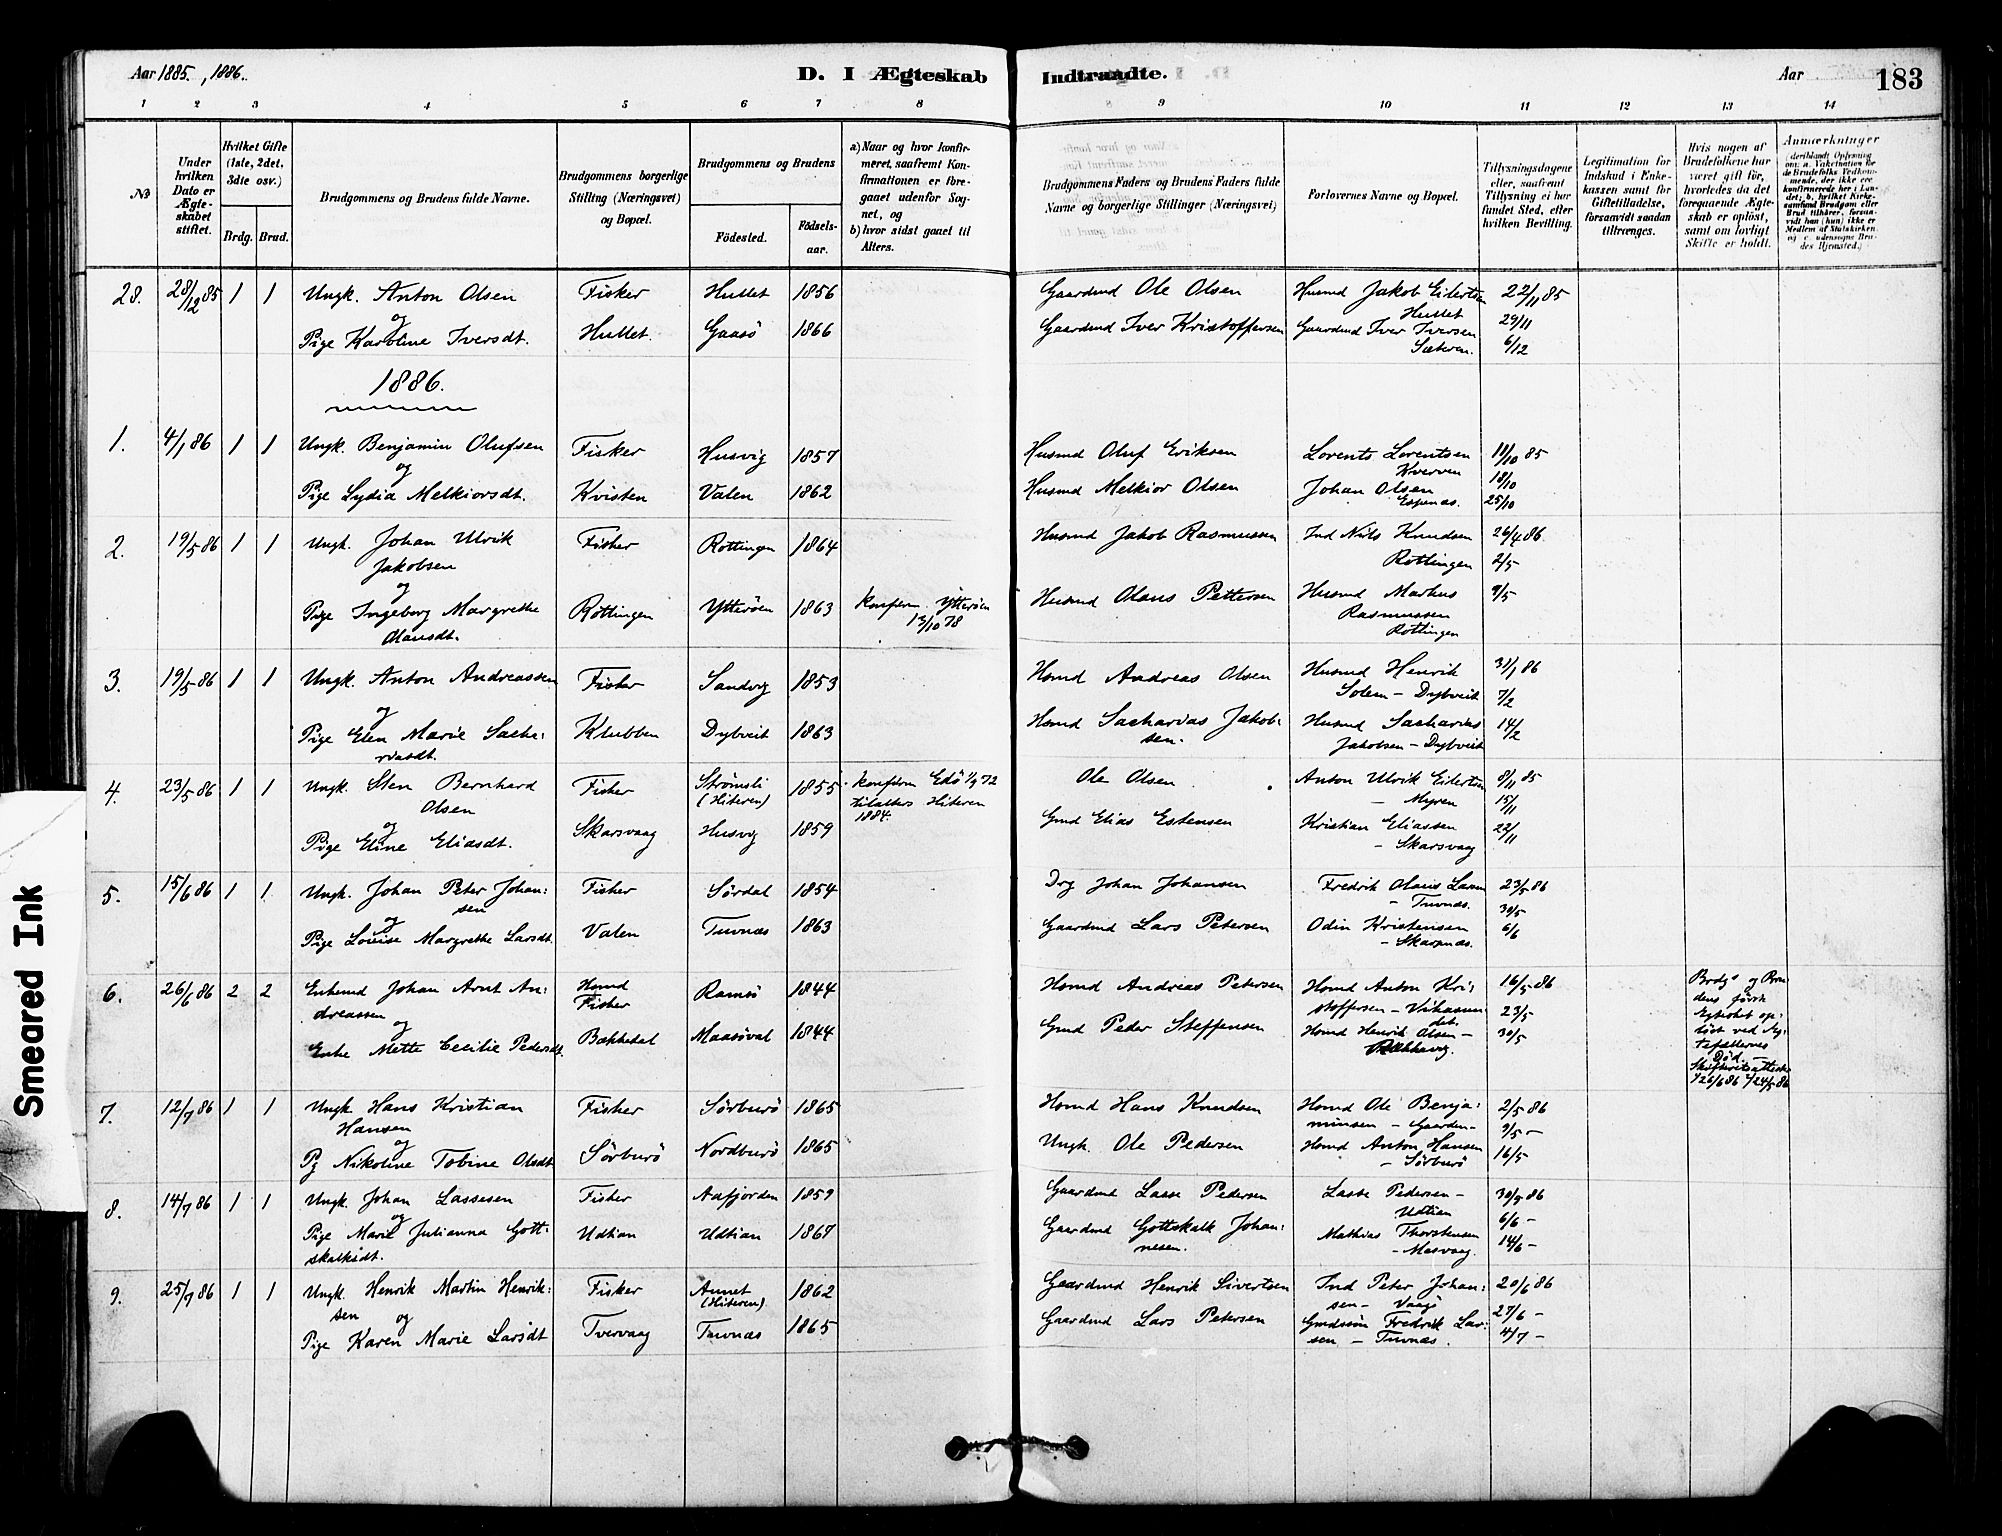 Aar 1885., 1886.
D. I Ægteskab Indtraadte.
Aar 183
1 2 3 4 5 6 7 8 8 9 10 11 12 13 14
No
Under hvilken Dato er Ægteskabet stiftet.
Hvilket Gifte (1ste, 2det, 3die osv.)
Brdg. Brud.
Brudgommens og Brudens fulde Navne.
Brudgommens borgerlige Stilling (Næringsvei) og Bopæl.
Brudgommens og Brudens
Födested.
Födselsaar.
a) Naar og hvor konfirmeret, saafremt Konfirmationen er foregaaet udenfor Sognet, og
b) hvor sidst gaaet til Alters.
Brudgommens Faders og Brudens Faders fulde Navne og borgerlige Stillinger (Næringsvei)
Forlovernes Navne og Bopæl.
Tillysningsdagene eller, saafremt Tillysning ei har fundet Sted, efter hvilken Bevilling.
Legitimation for Indskud i Enkekassen samt for Giftetilladelse, forsaavidt saadan tiltrænges.
Hvis nogen af Brudefolkene har været gift før, hvorledes da det foregaaende Ægteskab er oplöst, samt om lovligt Skifte er holdt.
Anmærkninger
28. 28/12 85 1 1 Ungk. Anton Olsen Fisker Hullet 1856 Gaardmd Ole Olsen Husmd Jakob Eilertsen Hullet 22/11 85
og
Pige Karoline Iversdt. Hullet. Gaasö 1866 Gaardmd Iver Kristoffersen Gaardmd Iver Iversen Sæteren. 29/11 6/12
1886.
1. 4/1 86 1 1 Ungk. Benjamin Olufsen Fisker Husvig 1857 Husmd Oluf Eriksen Lorents Lorentsen Kverven 11/10 85 18/10
og
Pige Lydia Melkiorsdt. Kvisten Valen 1862 Husmd Melkior Olsen Johan Olsen Espenæs. 25/10
2. 19/5 86 1 1 Ungk. Johan Ulrik Jakobsen Fisker Rottingen 1864 Husmd Jakob Rasmussen Ind Nils Knudsen Rottingen 26/4 86. 2/5
og
Pige Ingeborg Margrethe Olausdt. Röttingen Ytteröen 1863 konfirm. Ytteröen 13/10 78 Husmd Olaus Pettersen Husmd Markus Rasmussen Rottingen 9/5
3. 19/5 86 1 1 Ungk. Anton Andreassen Fisker Sandvig 1853 Hsmd Andreas Olsen Husmd Henrik Solem - Dybveit 31/1 86 7/2
og
Pige Elen Marie Sachariasdt. Klubben Dybveit 1863 Hsmd Sacharias Jakobsen. Husmd Sacharias Jakobsen - Dybveit 14/2
4. 23/5 86 1 1 Ungk. Sten Bernhard Olsen Fisker Strömsli (Hiteren) 1855 konfirm Edö 1/9 72 tilalters Hiteren 1884. Ole Olsen Anton Ulrik Eilertsen - Myren 8/11 85 15/11
og
Pige Eline Eliasdt. Skarsvaag Husvig 1859 Gmd Elias Estensen Kristian Eliassen - Skarsvaag 22/11
5. 15/6 86 1 1. Ungk. Johan Peter Johansen Fisker Sördal 1854 Drg Johan Johansen Fredrik Olaus Larsen - Tuvnæs. 23/5 86 30/5
og
Pige Louise Margrethe Larsdt. Valen Tuvnæs 1863 Gaardmd Lars Petersen Odin Kristensen - Skarpnæs. 6/6
6. 26/6 86 2 2 Enkemd Johan Arnt Andreassen Hsmd Fisker Ramsö 1844 Hsmd Andreas Petersen Hsmd Anton Kristoffersen - 16/5 86 23/5
og
Enke Mette Cecilie Pedersdt. Bakketel Maasöval 1844 Gmd Peder Steffensen Hsmd Henrik Olsen - 30/5
Brdgs og Brudens første Egteskab oplöst ved Ægtefællernes Död. - Skifteretsattester 26/6 86 24/5 86
7. 12/7 86 1 1 Ungk Hans Kristian Hansen Fisker Sörburö 1865 Hsmd Hans Knudsen Hsmd Ole Benjaminsen - Gaarden - 2/5 86 9/5 -
og
Pg Nikoline Tobine Olsdt Sörburö Nordburö 1865 Ungk. Ole Pedersen Hsmd Anton Hansen - Sörburö 16/5
8. 14/7 86 1 1 Ungk. Johan Lassesen Fisker Aafjorden 1859 Gaardmd Lasse Pedersen Lasse Pedersen - Udtian 30/5 86 6/6 -
og
Pige Marie Julianna Gottskalksdt. Udtian Udtian 1867 Gaardmd Gottskalk Johannesen. Mathias Thorstensen - Masvaag. 14/6 -
9. 25/7 86 1 1 Ungk. Henrik Martin Henriksen Fisker Aunet (Hiteren) 1862 Gaardmd Henrik Sivertsen Ind Peter Johansen - Vaagö 20/6 86 27/6 -
og
Pige Karen Marie Larsdt Tvervaag Tuvnæs 1865 Gaardmd Lars Petersen Gmdsön Fredrik Larsen - Tuvnæs. 4/7 -
Smeared Ink